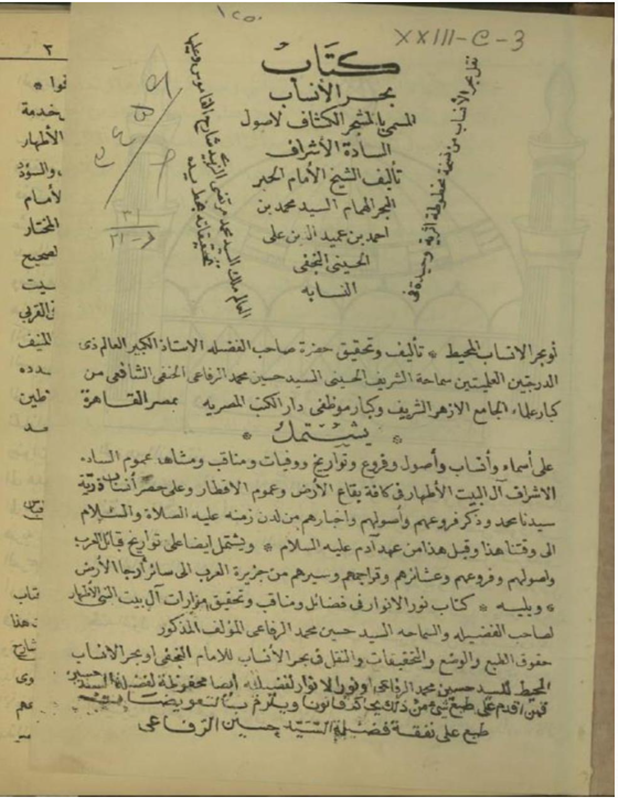 ١٢٥٠
XXIII-C-3
كتاب
بحر الأنساب
المسمى بالمشجر الكشاف لاصول
السادة الأشراف
تأليف الشيخ الأمام الحبر
البحر الهمام السيد محمد بن
احمد بن عميد الدين على
الحسينى النجفى
النسابه
نقل بحر الأنساب من نسخة مخطوطة اثرية وحيدة فى
العالم ملك السيد محمد مرتضى الزبيدى شارح القاموس وعليها
تحقيقاته بخط يده
أو بحر الانساب المحيط * تأليف وتحقيق حضرة صاحب الفضيله الاستاذ الكبير العالم ذى
الدرجتين العلميتين سماحة الشريف الحسينى السيد حسين محمد الرفاعى الحنفى الشافعى من
كبار علماء الجامع الازهر الشريف وكبار موظفى دار الكتب المصريه بمصر القاهرة
* يشتمل *
على أسماء وأنساب وأصول وفروع وتواريخ ووفيات ومناقب ومشاهد عموم الساده
الاشراف آل البيت الأطهار فى كافة بقاع الأرض وعموم الاقطار وعلى حصر أنساب ذرية
سيدنا محمد وذكر فروعهم وأصولهم واخبارهم من لدن زمنه عليه الصلاة والسلام
الى وقتنا هذا وقبل هذا من عهد آدم عليه السلام * ويشتمل ايضا على تواريخ قبائل العرب
واصولهم وفروعهم وعشائرهم وتراجمهم وسيرهم من جزيرة العرب الى سائر أرجا الأرض
* ويليه * كتاب نور الانوار فى فضائل ومناقب وتحقيق مزارات آل بيت النبى الأطهار
لصاحب الفضيله والسماحه السيد حسين محمد الرفاعى المؤلف المذكور
حقوق الطبع والوضع والتحقيقات والنقل فى بحر الأنساب للامام النجفى او بحر الانساب
المحيط للسيد حسين محمد الرفاعى او نور الانوار لفضيلته ايضا محفوظة لفضيلة السيد حسين
فمن اقدم على طبع شئ من ذلك يحاكم قانونا ويلزم بالتعويضات
طبع على نفقة فضيلة السيد حسين الرفاعى
٢
خدمة
الأطهار
لأمام
المختار
لصحيح
القربى
المنيف